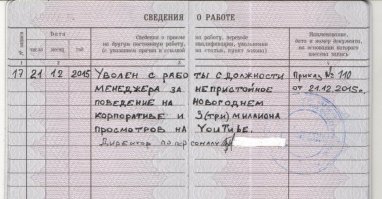 СВЕДЕНИЯ О РАБОТЕ
№ записи
Дата
число
месяц
год
Сведения о приеме на работу, переводе
на другую постоянную работу, квалификации, увольнении
(с указанием причин и ссылкой на статью, пункт закона)
Наименование,
дата и номер документа,
на основании которого
внесена запись
1 2 3 4
17 21 12 2015 Уволен с работы с должности Приказ № 110
менеджера за непристойное от 21.12.2015г.
поведение на новогоднем
корпоративе и 3(три) миллиона
просмотров на YouTube.
Директор по персоналу